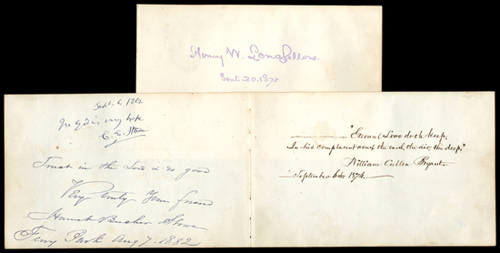 Henry W. Longfellow
Sept. 20. 1878
Sept. 6. 1882
is my hope
C. E. Stowe
Trust in the Lord & do good
Very Truly Your friend
Harriet Beecher Stowe
Aug 7. 1882
"Eternal Love doth keep,
In his complacent arms, the earth, the air, the deep."
William Cullen Bryant
September 6th 1874.